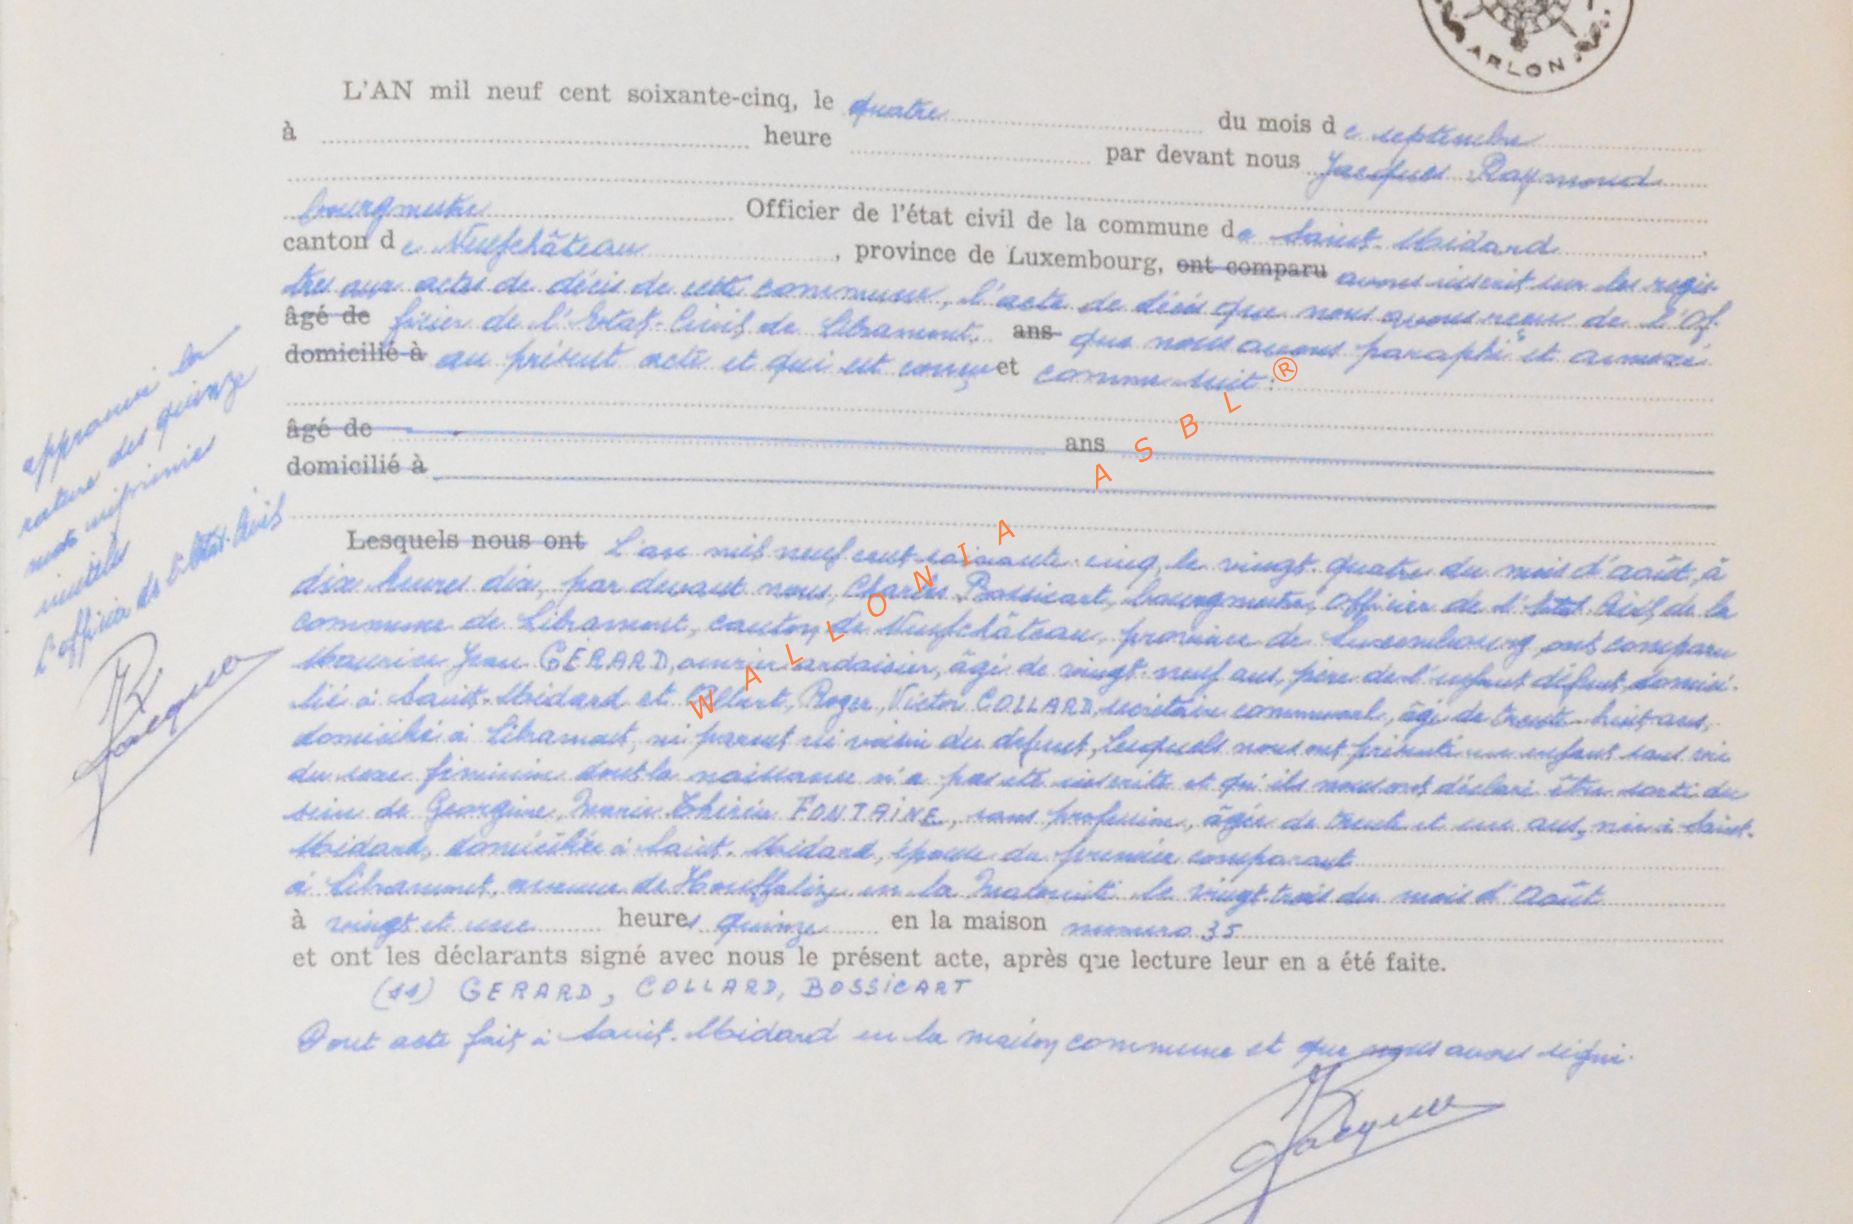 ARLON
L'AN mil neuf cent soixante-cinq, le quatre du mois de septembre
à heure par devant nous Jacques Raymond
bourgmestre Officier de l'état civil de la commune de Saint-Médard
canton de Neufchâteau, province de Luxembourg, ont comparu avons inscrit sur les regis-
tres aux actes de décès de cette commune, l'acte de décès que nous avons reçu de l'Of-
âgé de ficier de l'Etat-Civil de Libramont, ans que nous avons paraphé et annexé
domicilié à au présent acte et qui est conçu et comme suit :
âgé de ans
domicilié à
Lesquels nous ont L'an mil neuf cent soixante-cinq, le vingt-quatre du mois d'août, à
dix heures dix, par devant nous, Charles Bossicart, bourgmestre, Officier de l'Etat Civil, de la
commune de Libramont, canton de Neufchâteau, province de Luxembourg, ont comparu
Maurice Jean GERARD, ouvrier ardoisier, âgé de vingt-neuf ans, père de l'enfant défunt, domici-
lié à Saint-Médard et Albert, Roger, Victor COLLARD, secrétaire communal, âgé de trente-huit ans,
domicilié à Libramont, ni parent ni voisin du défunt, lesquels nous ont présenté un enfant sans vie
du sexe féminin dont la naissance n'a pas été inscrite et qu'ils nous ont déclaré être sorti du
sein de Georgine, Marie Thérèse FONTAINE, sans profession, âgée de trente et un ans, née à Saint-
Médard, domiciliée à Saint-Médard, épouse du premier comparant
à Libramont, avenue de Houffalize en la Maternité le vingt-trois du mois d'Août
à vingt et une heures quinze en la maison numéro 35
et ont les déclarants signé avec nous le présent acte, après que lecture leur en a été faite.
(ss) GERARD, COLLARD, BOSSICART
Dont acte fait à Saint-Médard en la maison commune et que nous avons signé.
Jacques
approuvé la
rature des quinze
mots imprimés
inutiles
L'officier de l'Etat-Civil
Jacques
WALLONIA ASBL®